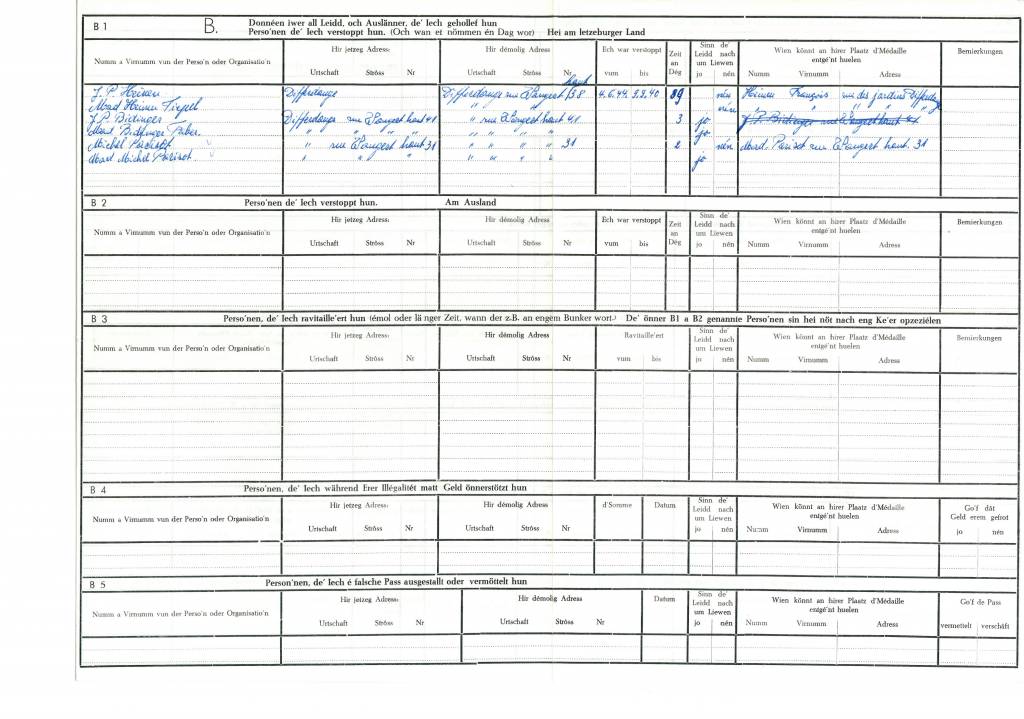 B 1 B. Donnéen iwer all Leidd, och Auslänner, de' Iech gehollef hun
Perso'nen de' Iech verstoppt hun. (Och wan et nömmen én Dag wor) Hei am letzeburger Land
Numm a Virnumm vun der Perso'n oder Organisatio'n
Hir jetzeg Adress:
Urtschaft Ströss Nr
Hir démolig Adress:
Urtschaft Ströss Nr
Ech war verstoppt
vum bis
Zeit an Dég
Sinn de' Leidd nach um Liewen
jo nén
Wien könnt an hirer Plaatz d'Médaille entgé'nt huelen
Numm Virnumm Adress
Bemierkungen
J. P. Heinen Differdange Differdange rue haut 38 4.6.44 89 nén Heinen François rue des jardins
Mad Heinen nén " " "
J. P. Bidinger Differdange rue haut 41 " rue haut 41 3 jo
Mad. Bidinger " " " " " " " jo
Michel Parisot " rue haut 31 " " " 31 2 nén Mad. Parisot rue haut. 31
Mad Michel Parisot. " " " " " " " jo
B 2 Perso'nen de' Iech verstoppt hun. Am Ausland
Numm a Virnumm vun der Perso'n oder Organisatio'n
Hir jetzeg Adress:
Urtschaft Ströss Nr
Hir démolig Adress:
Urtschaft Ströss Nr
Ech war verstoppt
vum bis
Zeit an Dég
Sinn de' Leidd nach um Liewen
jo nén
Wien könnt an hirer Plaatz d'Médaille entgé'nt huelen
Numm Virnumm Adress
Bemierkungen
B 3 Perso'nen, de' Iech ravitaille'ert hun (émol oder lä nger Zeit, wann der z.B. an engem Bunker wort.) De' önner B1 a B2 genannte Perso'nen sin hei nöt nach eng Ke'er opzeziélen
Numm a Virnumm vun der Perso'n oder Organisatio'n
Hir jetzeg Adress:
Urtschaft Ströss Nr
Hir démolig Adress
Urtschaft Ströss Nr
Ravitaille'ert
vum bis
Sinn de' Leidd nach um Liewen
jo nén
Wien könnt an hirer Plaatz d'Médaille entgé'nt huelen
Numm Virnumm Adress
Bemierkungen
B 4 Perso'nen, de' Iech während Erer Illégalitét matt Geld önnerstötzt hun
Numm a Virnumm vun der Perso'n oder Organisatio'n
Hir jetzeg Adress:
Urtschaft Ströss Nr
Hir démolig Adress
Urtschaft Ströss Nr
d'Somme
Datum
Sinn de' Leidd nach um Liewen
jo nén
Wien könnt an hirer Plaatz d'Médaille entgé'nt huelen
Numm Virnumm Adress
Go'f dât Geld erem gefrot
jo nén
B 5 Person'nen, de' Iech é falsche Pass ausgestallt oder vermöttelt hun
Numm a Virnumm vun der Perso'n oder Organisatio'n
Hir jetzeg Adress:
Urtschaft Ströss Nr
Hir démolig Adress
Urtschaft Ströss Nr
Datum
Sinn de' Leidd nach um Liewen
jo nén
Wien könnt an hirer Plaatz d'Médaille entgé'nt huelen
Numm Virnumm Adress
Go'f de Pass
vermettelt verschâft